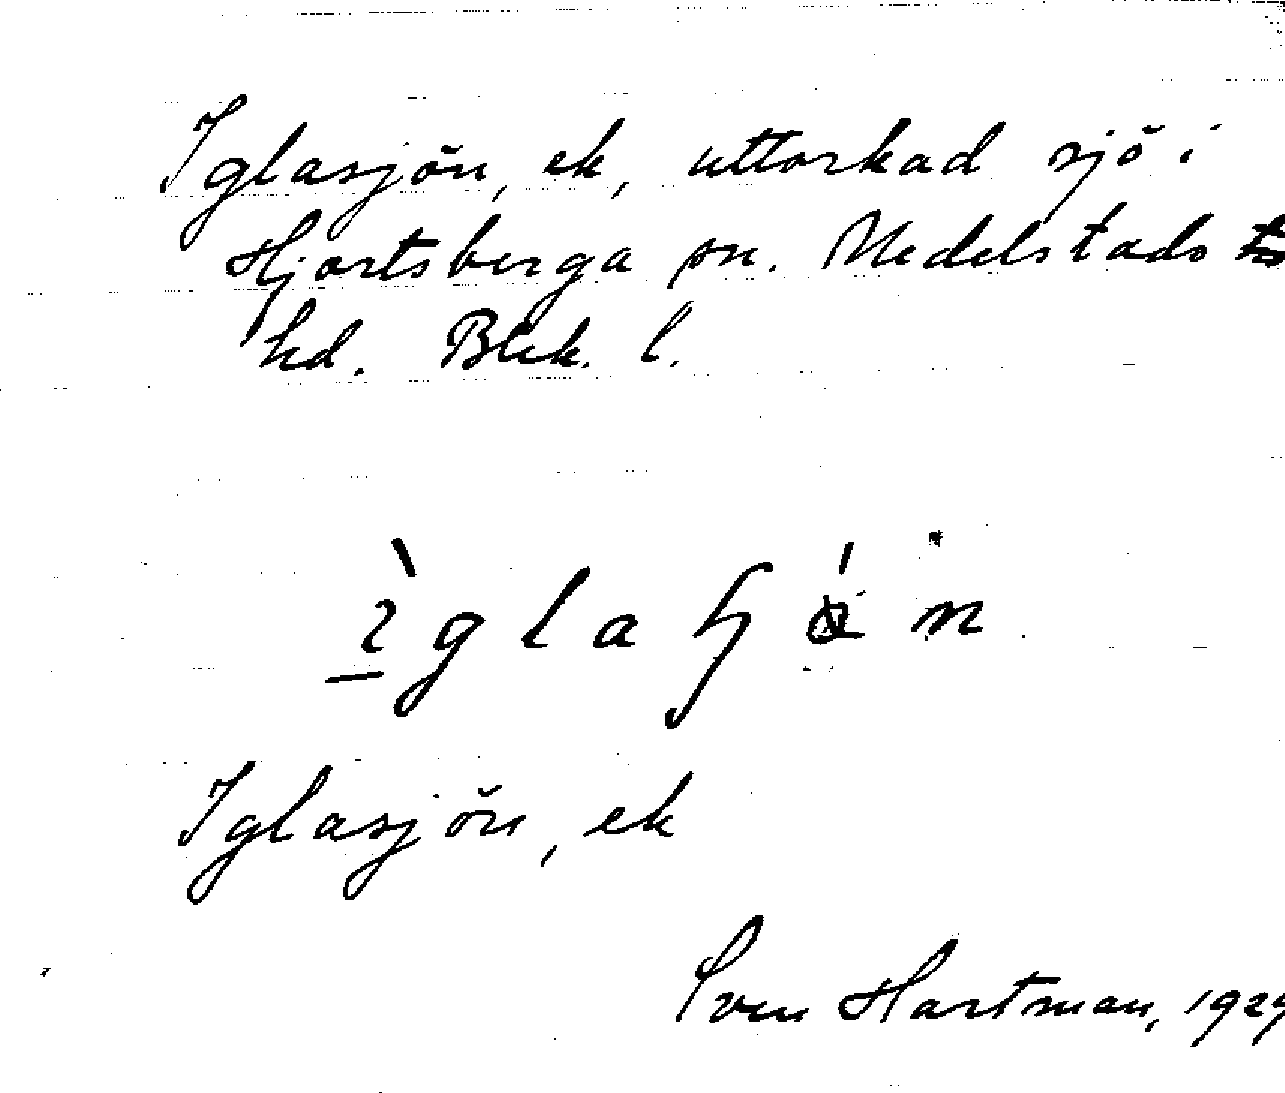 Iglasjön, ek, uttorkad sjö i
Hjortsberga sn. Medelstads
hd. Blek. l.
Iglasjön, ek
Sven Hartman, 192